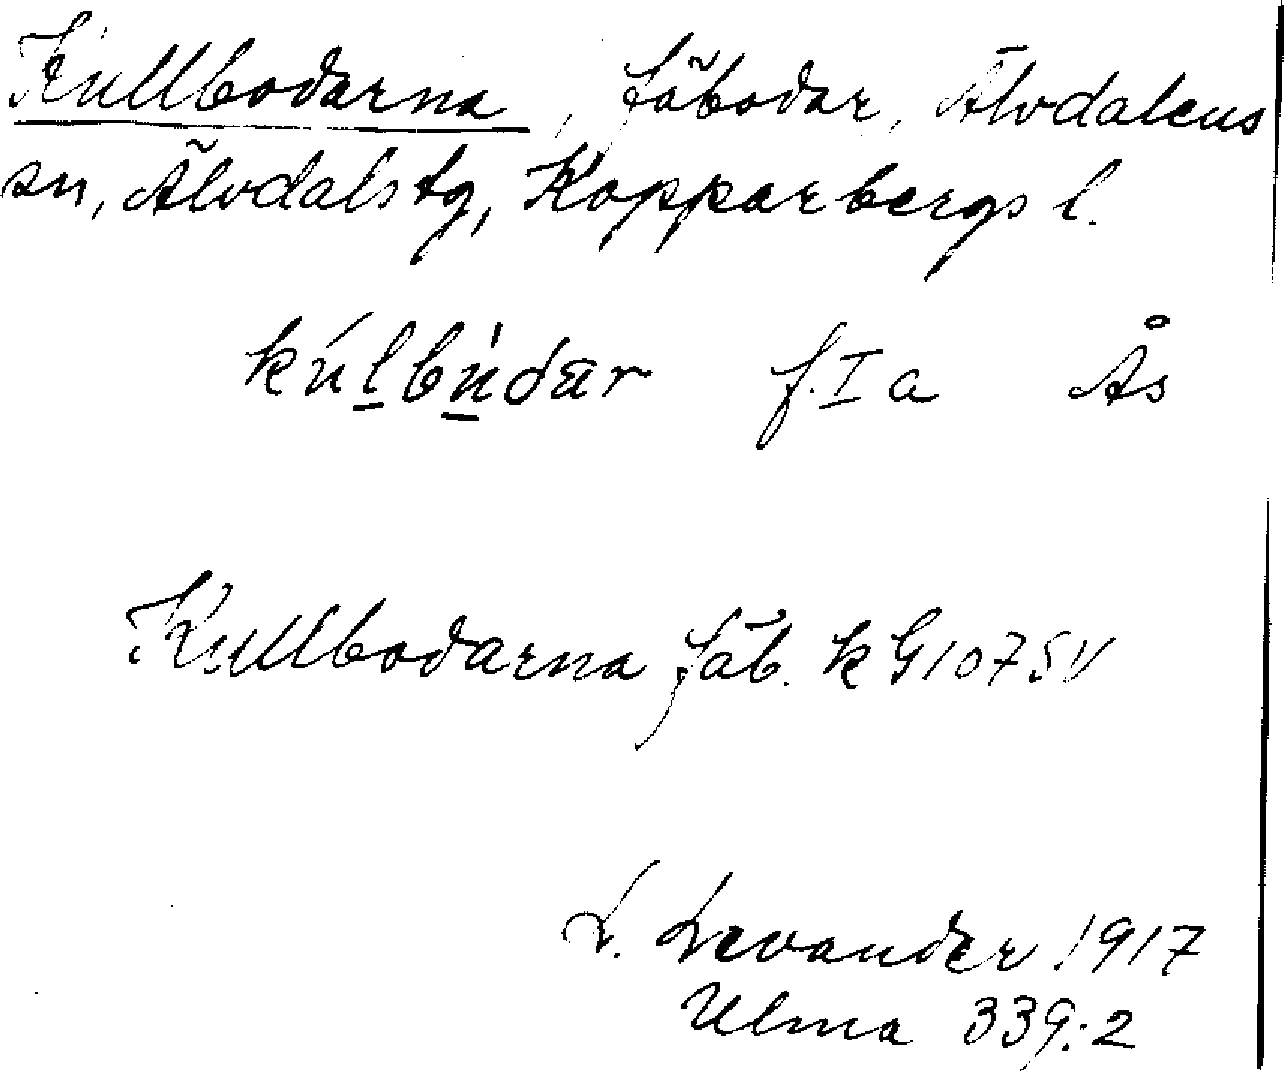 Kullbodarna, fäbodar, Älvdalens
sn, Älvdals tg, Kopparbergs l.
kúlbùdær f. I a Ås
Kullbodarna fäb. k G 1075 V
L. Levander 1917
Ulma 339:2